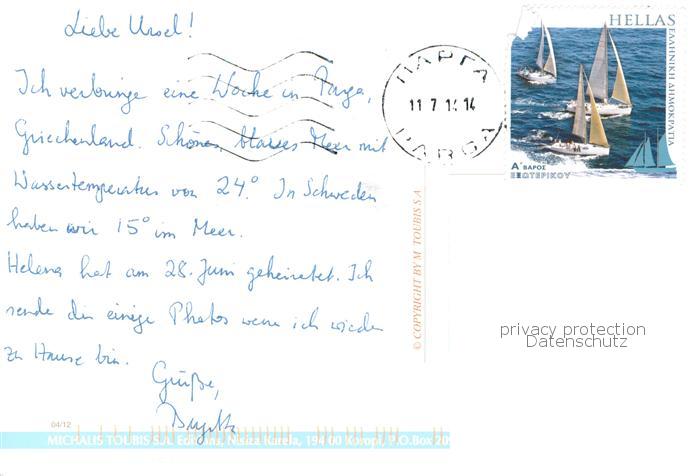 Liebe Ursel!
Ich verbringe eine Woche in Parga,
Griechenland. Schönes, blaues Meer mit
Wassertemperatur von 24°. In Schweden
haben wir 15° im Meer.
Helena hat am 28. Juni geheiratet. Ich
sende dir einige Photos wenn ich wieder
zu Hause bin.
Grüße,
HELLAS
ΕΛΛΗΝΙΚΗ ΔΗΜΟΚΡΑΤΙΑ
Α' ΒΑΡΟΣ
ΕΞΩΤΕΡΙΚΟΥ
ΠΑΡΓΑ
11 7 14 14
PARGA
© COPYRIGHT BY M. TOUBIS S.A.
privacy protection
Datenschutz
04/12
MICHALIS TOUBIS S.A. Editions, Nisiza Karela, 194 00 Koropi, P.O.Box 20